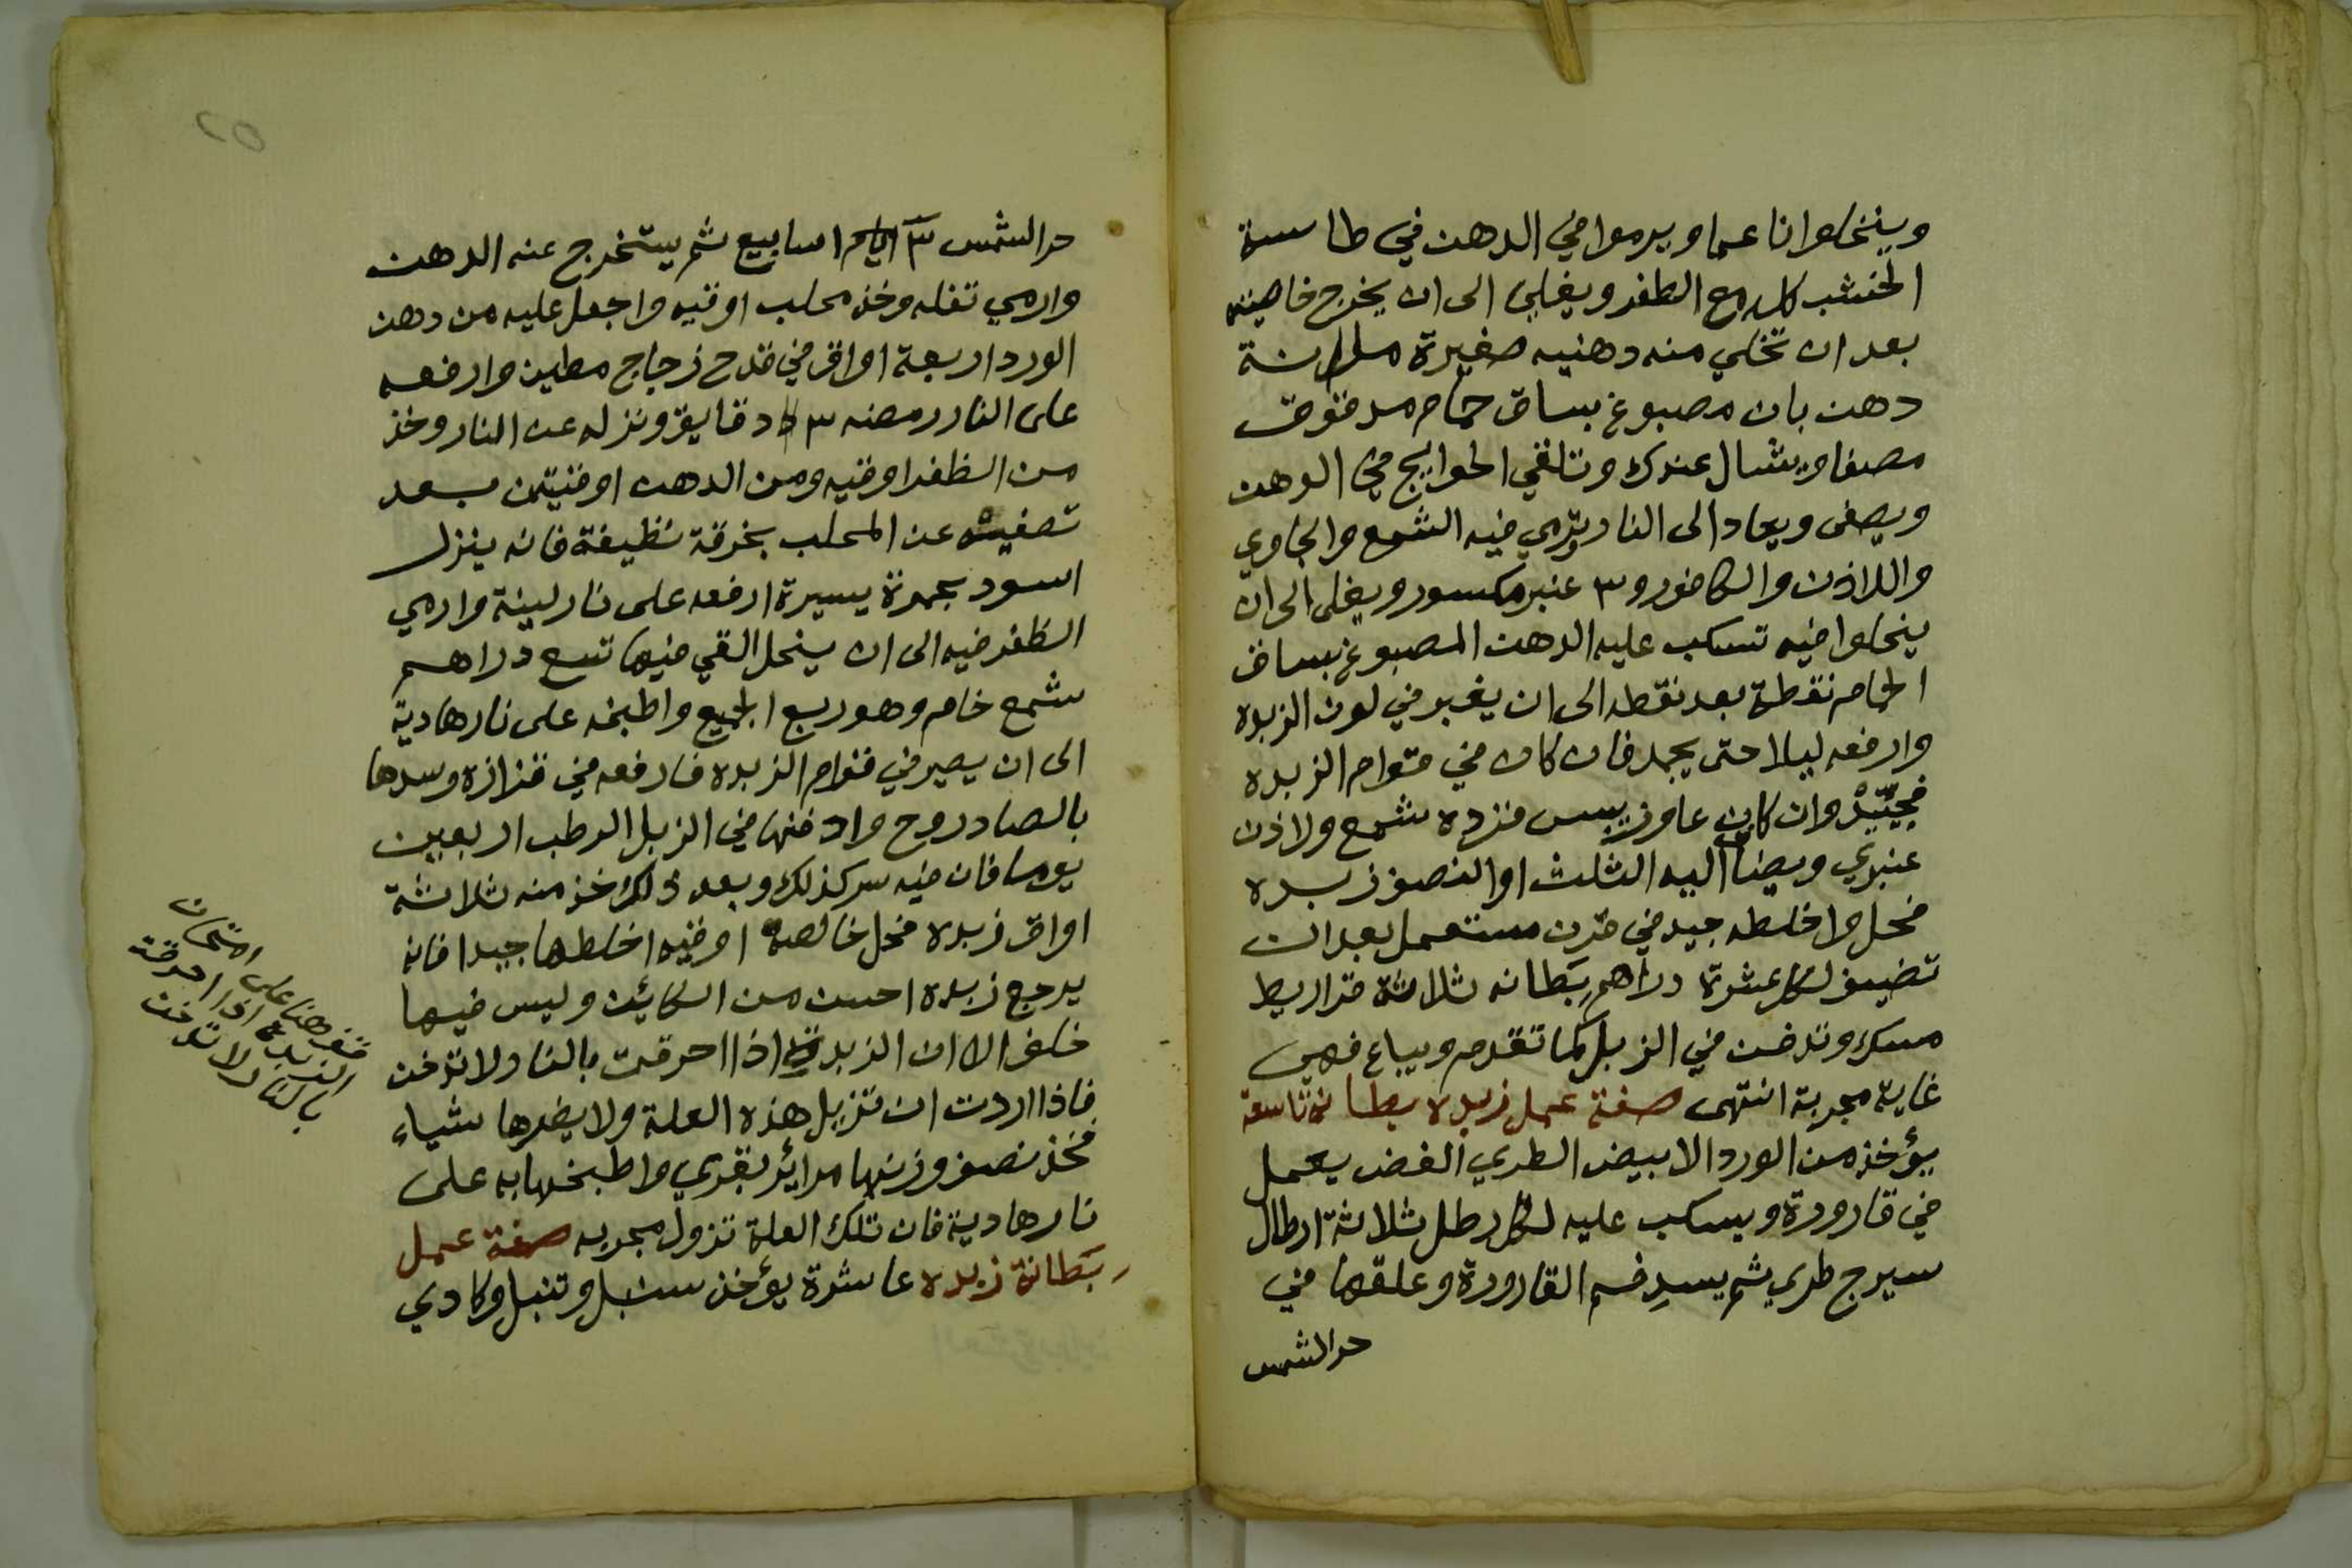 وينخلوا ناعما ويرموا في الدهن في طاسة
الخشب كل مع الظفر ويغلي الى ان يخرج خاصيته
بعد ان تخلي منه دهنيه صغيرة ملانة
دهن بان مصبوغ بساق حمام مدقوق
مصفا ويشال عندك وتلقي الحوايج في الدهن
ويصفى ويعاد الى النار ويرمي فيه الشمع والجاوي
واللاذن والكافور و٣ عنبر مكسور ويغلى الى ان
ينحلوا فيه تسكب عليه الدهن المصبوغ بساق
الحمام نقطة بعد نقطه الى ان يغبر في لون الزبده
وارفعه ليلا حتى يجمد فان كان في قوام الزبده
فجيّد وان كان عاوز يبس فزده شمع ولاذن
عنبري ويضاف اليه الثلث او النصف زبده
فحل واخلطه جيد في قرن مستعمل بعد ان
تضيف لكل عشرة دراهم بطانه ثلاثة قراريط
مسك وتدفن في الزبل كما تقدم ويباع فهي
غاية مجربة انتهى صفة عمل زبده بطانة تاسعة
يؤخذ من الورد الابيض الطري الغض يعمل
في قارورة ويسكب عليه لكل رطل ثلاثة ارطال
سيرج طري ثم يسد فم القارورة وعلقها في
حر الشمس
حر الشمس ٣ ايام اسابيع ثم يستخرج عنه الدهن
وارمي تفله وخذ محلب اوقيه واجعل عليه من دهن
الورد اربعة اواق في قدح زجاج مطين وارفعه
على النار رمضه ٣ دقايق ونزله عن النار وخذ
من الظفر اوقيه ومن الدهن اوقيتين بعد
تصفيته عن المحلب بخرقة نظيفة فانه ينزل
اسود بحمرة يسيرة ارفعه على نار لينة وارمي
الظفر فيه الى ان ينحل القي فيها تسع دراهم
شمع خام وهو ربع الجميع واطبخه على نار هادية
الى ان يصير في قوام الزبده فارفعه في قزازة وسدها
بالصاد روح وادفنها في الزبل الرطب اربعين
يوما فان فيه سر كذلك وبعد ذلك خذ منه ثلاثة
اواق زبده فحل خالصه اوقيه اخلطها جيدا فانه
يرجع زبده احسن من الكائن وليس فيها
خلف الا ان الزبدة اذا احرقت بالنار لا تدخن
فاذا اردت ان تزيل هذه العلة ولا يضرها شياء
فخذ نصف وزنها مرائر بقري واطبخها به على
نار هادية فان تلك العلة تزول مجربه صفة عمل
بطانة زبده عاشرة يؤخذ سنبل وتنبل وكادي
قف هنا على امتحان
الزبده اذا احرقت
بالنار لا تدخن